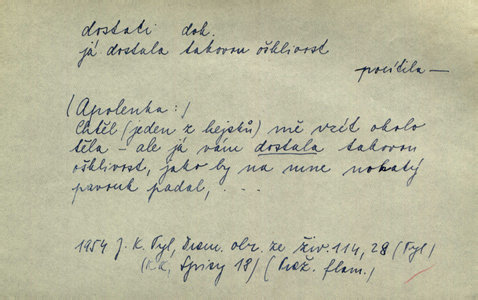 dostati dok.
já dostala takovou ošklivost
pocítila —
(Apolenka:)
Chtěl (jeden z hejsků) mě vzít okolo
těla – ale já vám dostala takovou
ošklivost, jako by na mne nohatý
pavouk padal, . . .
1954 J. K. Tyl, Dram. obr. ze živ. 114, 28 (Tyl)
(KK, Spisy 18) ( flam.)